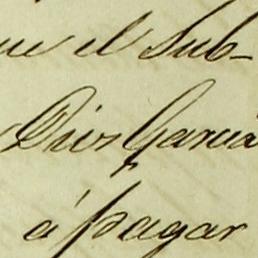 que el Sub-
Dios Garcia
á pagar